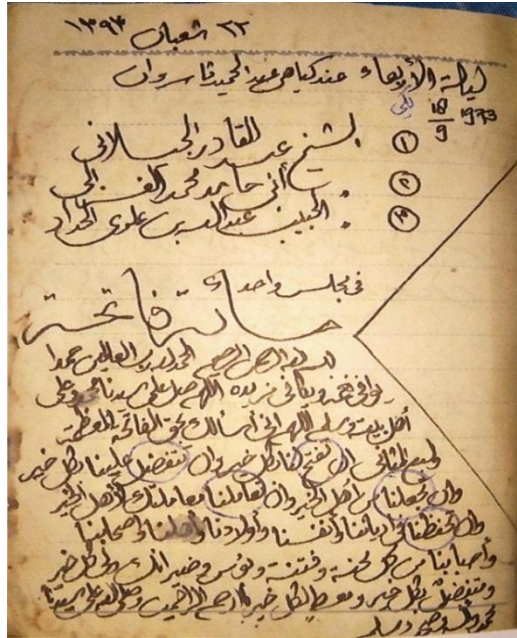 ٢٢ شعبان ١٣٩٣
ليلة الأربعاء عند كياهي عبد الحميد فاسروان
18/9 1973
① الشيخ عبد القادر الجيلاني
② أبي حامد محمد الغزالي
③ الحبيب عبد الله بن علوي الحداد
في مجلس واحد
مائة فاتحة
بسم الله الرحمن الرحيم الحمد لله رب العالمين حمدا
يوافي نعمه ويكافئ مزيده اللهم صل على سيدنا محمد وعلى
أهل بيته وسلم اللهم إني أسألك بحق الفاتحة المعظمة
والسبع المثاني أن تفتح لنا بكل خير وأن تتفضل علينا بكل خير
وأن تجعلنا من أهل الخير وأن تعاملنا معاملتك لأهل الخير
وأن تحفظنا في أدياننا وأنفسنا وأولادنا وأهلنا وأصحابنا
وأحبابنا من كل محنة وفتنة وبؤس وضير إنك ولي كل خير
ومتفضل بكل خير ومعط لكل خير يا أرحم الراحمين وصلى الله على سيدنا
محمد وآله وصحبه وسلم